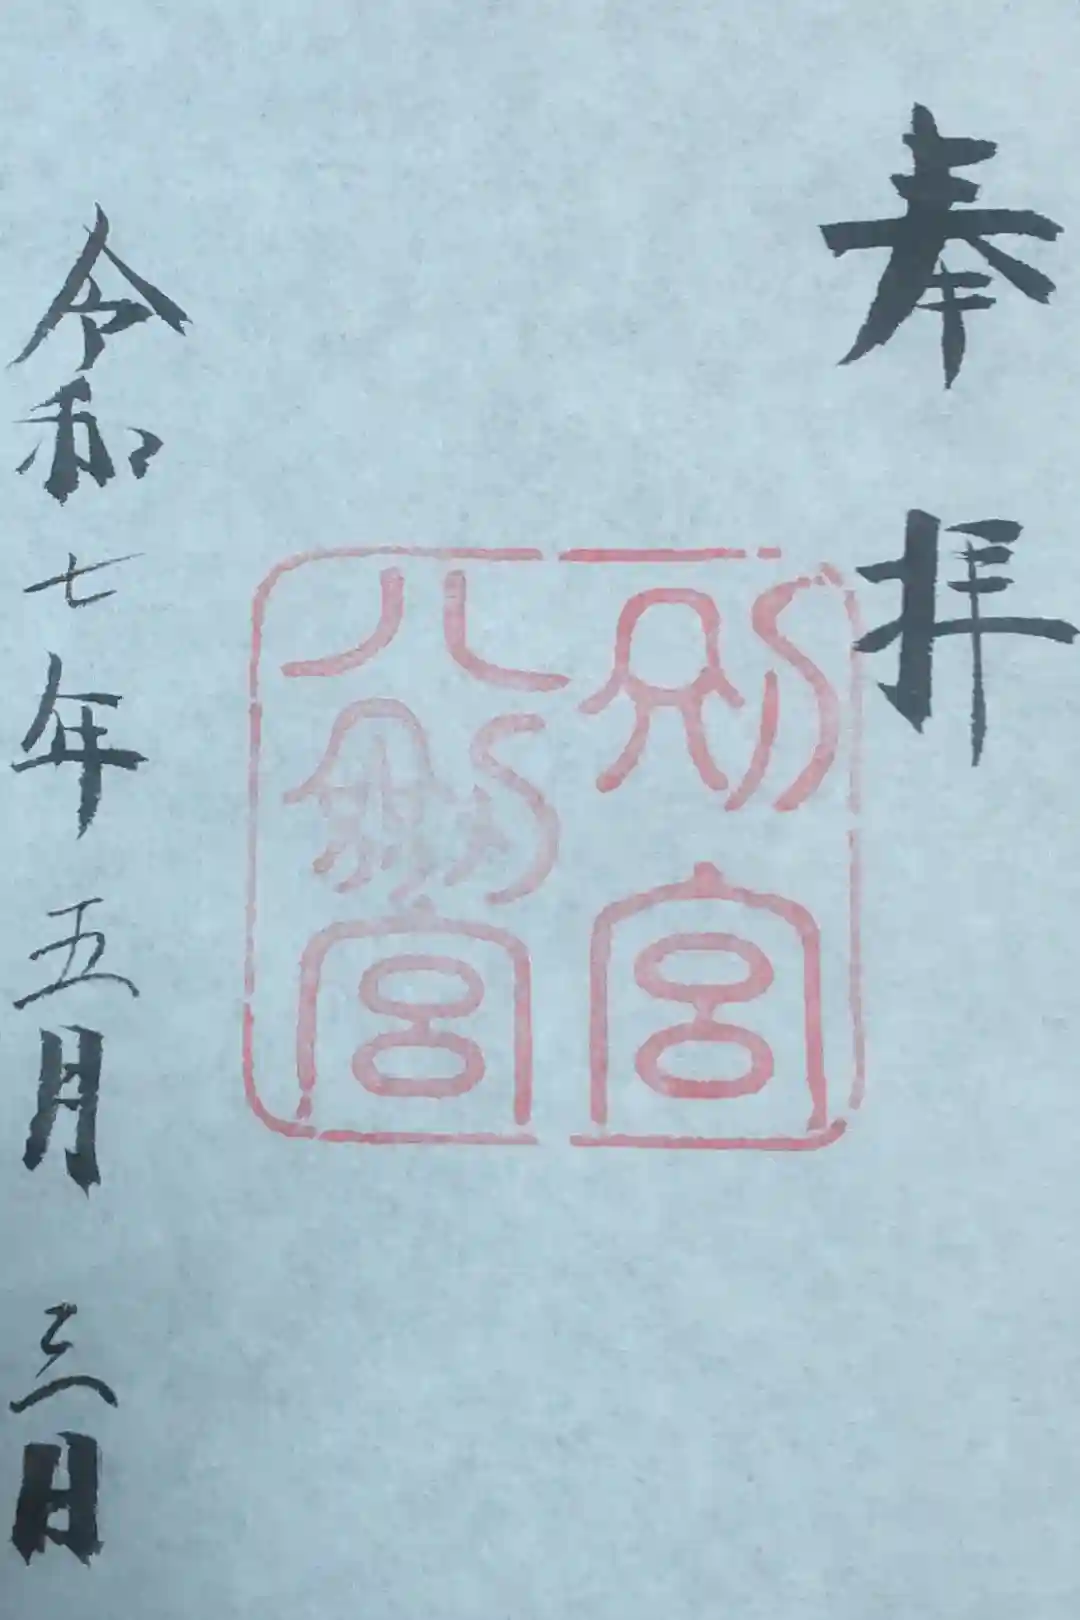 奉拝
別宮
八劔宮
令和七年五月三日